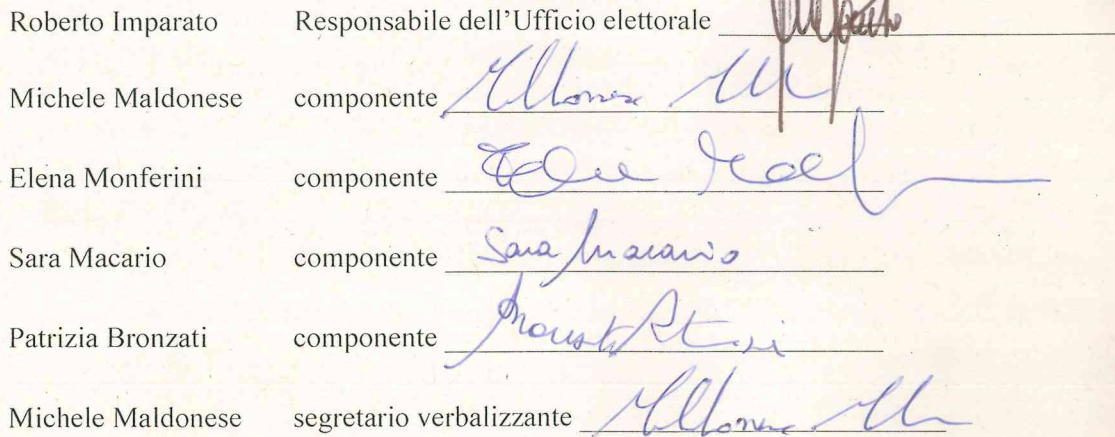 Roberto Imparato Responsabile dell'Ufficio elettorale
Michele Maldonese componente
Elena Monferini componente
Sara Macario componente Sara Macario
Patrizia Bronzati componente
Michele Maldonese segretario verbalizzante